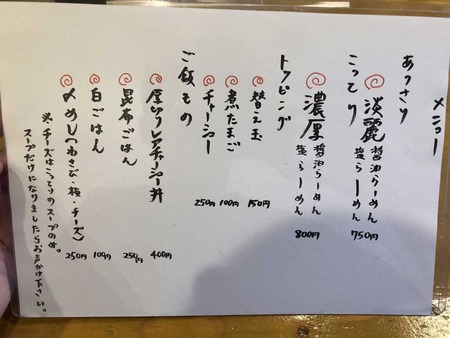 メニュー
あっさり
淡麗 醤油らーめん
塩らーめん 750円
こってり
濃厚 醤油らーめん
塩らーめん 800円
トッピング
替え玉 150円
煮たまご 100円
チャーシュー 250円
ご飯もの
厚切りレアチャーシュー丼 400円
昆布ごはん 250円
白ごはん 100円
〆めし(わさび・梅・チーズ) 250円
※チーズはこってりのスープのみ。
スープだけになりましたらお声がけ下さい。